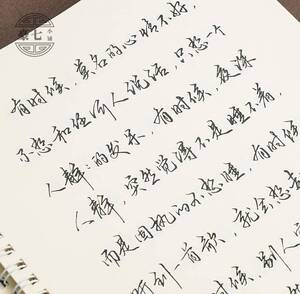 桑七
小铺
有时候，莫名的心情不好，
不想和任何人说话，只想一个
人静静的发呆，有时候，夜深
人静，突然觉得不是睡不着，
而是固执的不想睡，有时候
听到一首歌，就会想
时候，别人